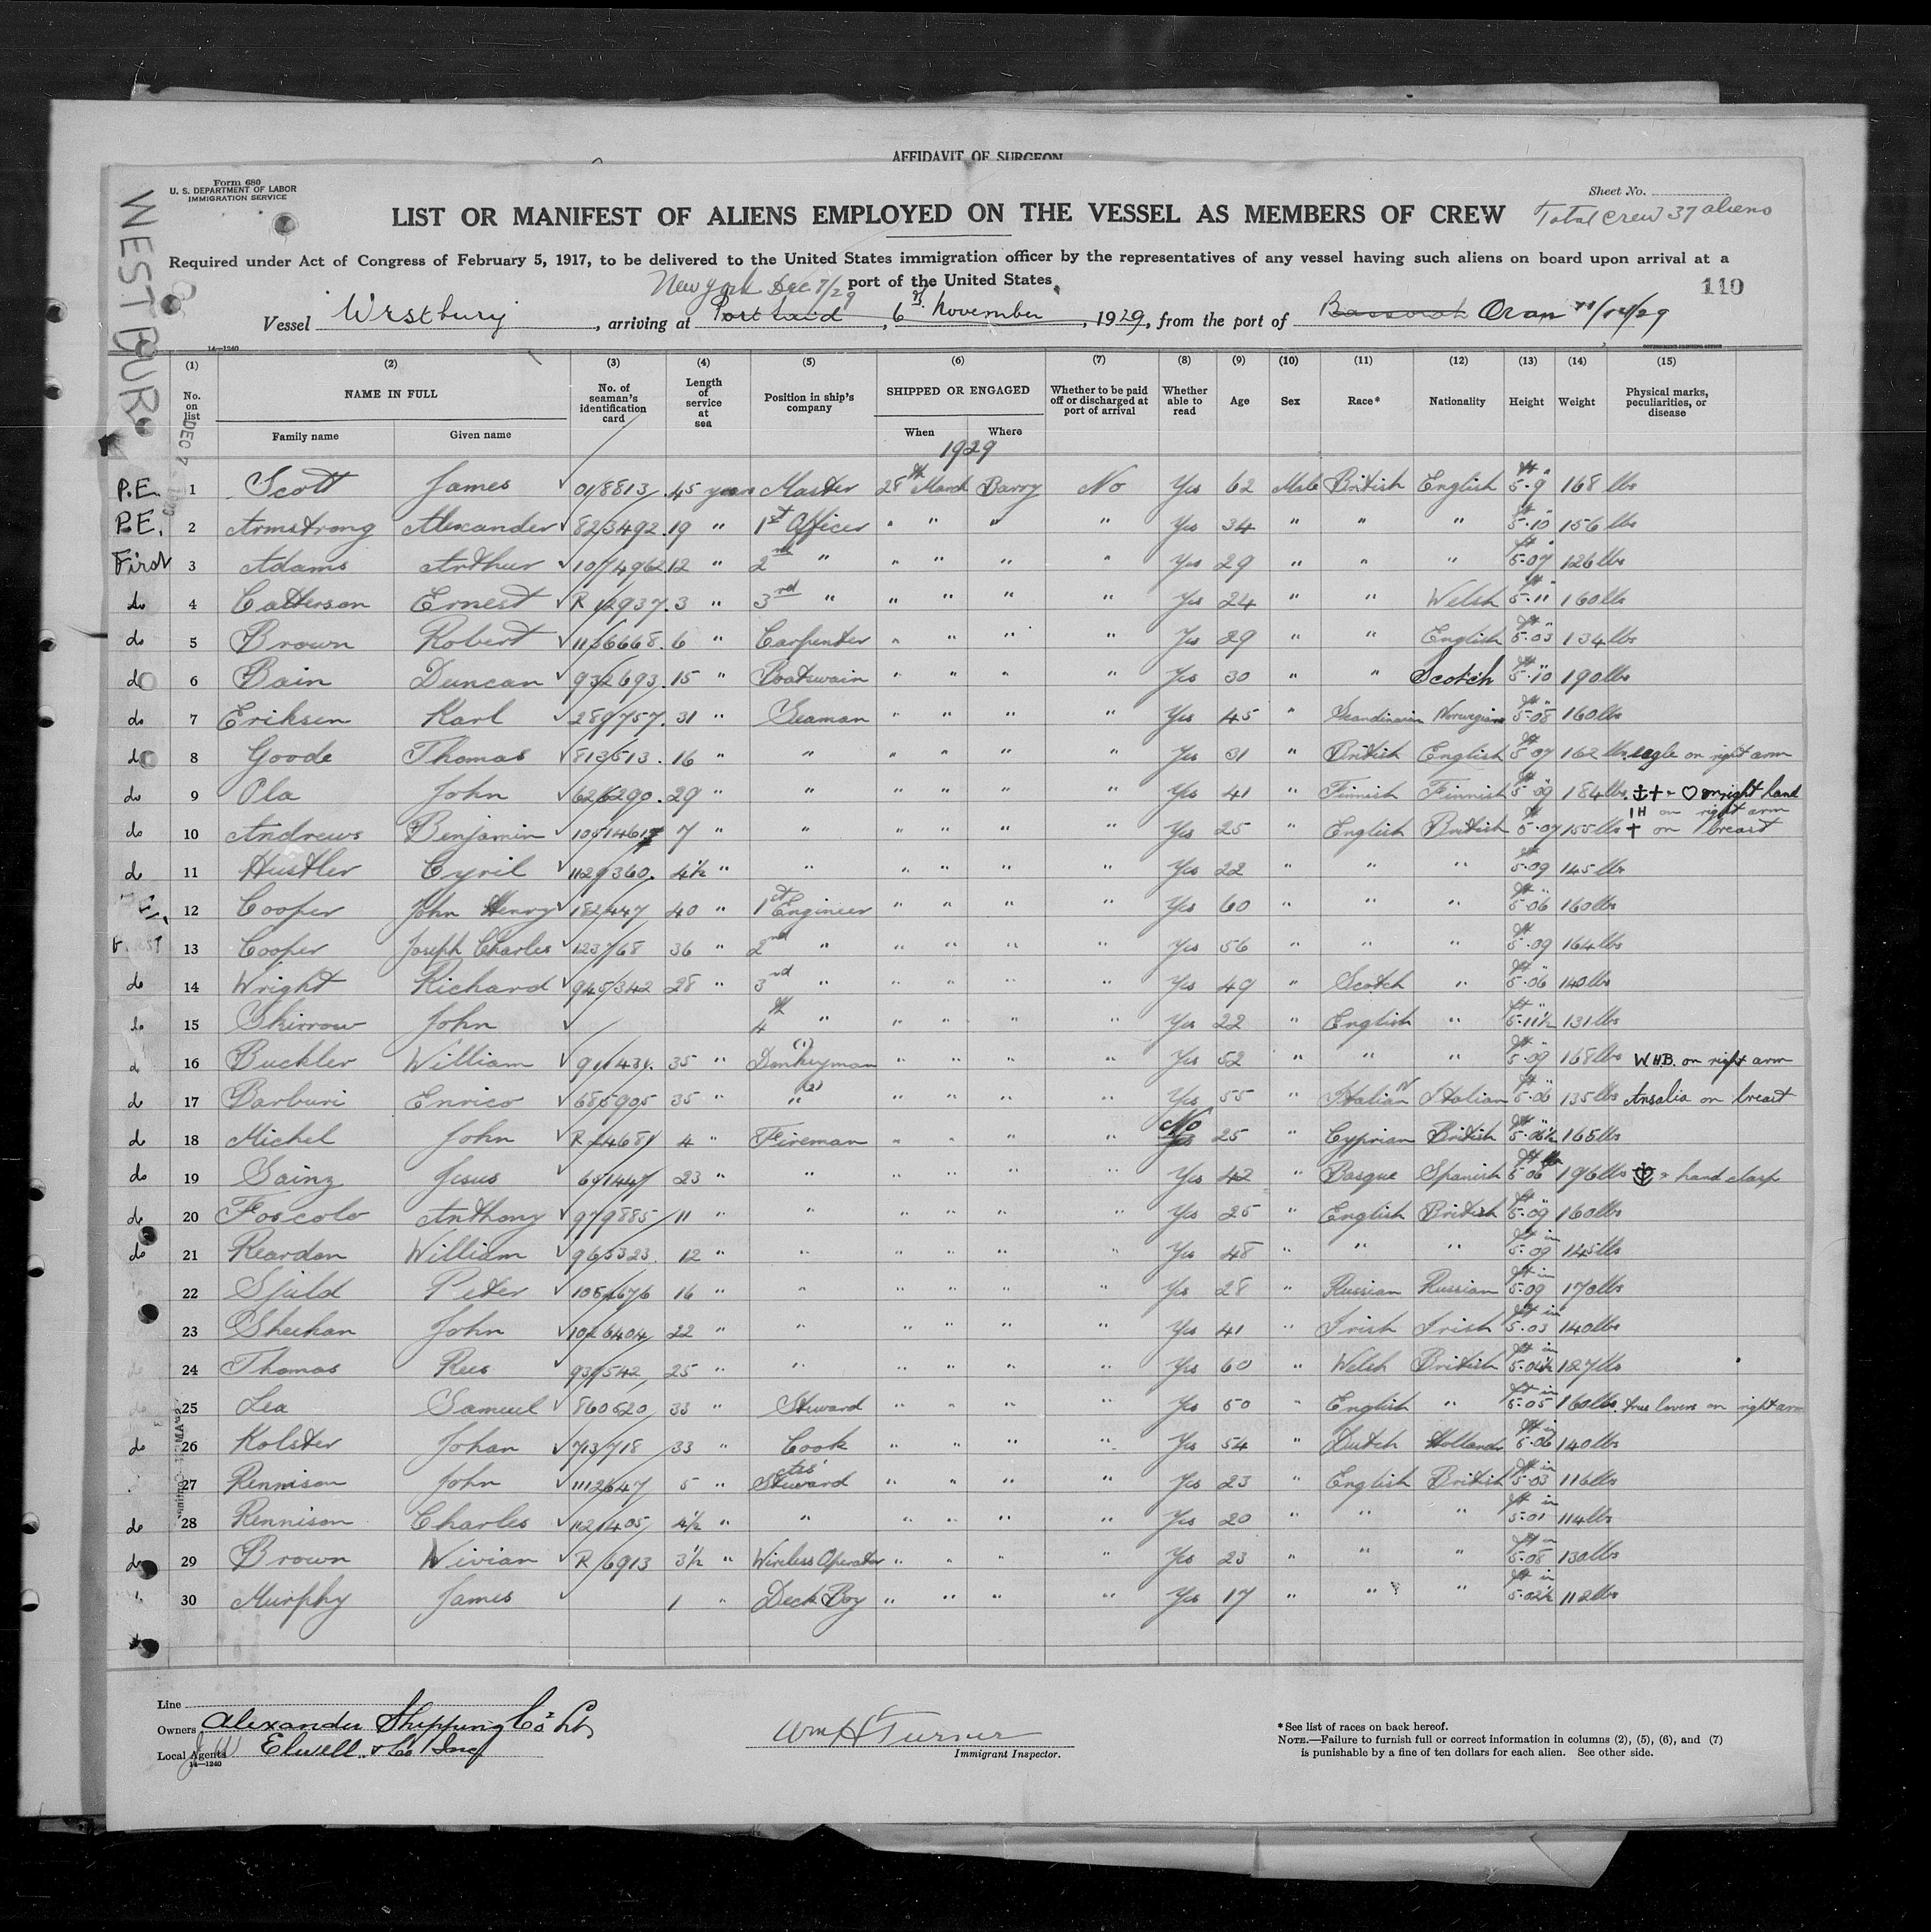 AFFIDAVIT OF SURGEON
Form 680
U. S. DEPARTMENT OF LABOR
IMMIGRATION SERVICE
Sheet No.
LIST OR MANIFEST OF ALIENS EMPLOYED ON THE VESSEL AS MEMBERS OF CREW
Total Crew 37 aliens
Required under Act of Congress of February 5, 1917, to be delivered to the United States immigration officer by the representatives of any vessel having such aliens on board upon arrival at a
port of the United States
New York Dec 7/29
110
Vessel Westbury, arriving at Port Said, 6th November, 1929, from the port of Bassorah Oran 11/14/29
WESTBURY
14—1240
(1) (2) (3) (4) (5) (6) (7) (8) (9) (10) (11) (12) (13) (14) (15)
No. on list NAME IN FULL No. of seaman's identification card Length of service at sea Position in ship's company SHIPPED OR ENGAGED Whether to be paid off or discharged at port of arrival Whether able to read Age Sex Race* Nationality Height Weight Physical marks, peculiarities, or disease
Family name Given name When Where
1929
P.E. 1 Scott James 018813 45 years Master 28th March Barry No Yes 62 Male British English 5.9 168 lbs
P.E. 2 Armstrong Alexander 823492 19 " 1st Officer " " " " Yes 34 " " " 5.10 156 lbs
First 3 Adams Arthur 1074962 12 " 2nd " " " " " Yes 29 " " " 5.07 126 lbs
do 4 Catterson Ernest R 12937 3 " 3rd " " " " " Yes 24 " " Welsh 5.11 160 lbs
do 5 Brown Robert 1156668 6 " Carpenter " " " " Yes 29 " " English 5.03 134 lbs
do 6 Bain Duncan 932693 15 " Boatswain " " " " Yes 30 " " Scotch 5.10 190 lbs
do 7 Eriksen Karl 289757 31 " Seaman " " " " Yes 45 " Scandinavian Norwegian 5.08 160 lbs
do 8 Goode Thomas 813513 16 " " " " " " Yes 31 " British English 5.07 162 lbs eagle on right arm
do 9 Ola John 626290 29 " " " " " " Yes 41 " Finnish Finnish 5.09 184 lbs ⚓ + & ♡ on right hand
IH on right arm
do 10 Andrews Benjamin 7 " " " " " " Yes 25 " English British 5.07 155 lbs + on breast
do 11 Hustler Cyril 1129360 4½ " " " " " " Yes 22 " " " 5.09 145 lbs
12 Cooper John Henry 182447 40 " 1st Engineer " " " " Yes 60 " " " 5.06 160 lbs
First 13 Cooper Joseph Charles 123768 36 " 2nd " " " " " Yes 56 " " " 5.09 164 lbs
do 14 Wright Richard 945342 28 " 3rd " " " " " Yes 49 " Scotch " 5.06 140 lbs
do 15 Skirrow John 4th " " " " " Yes 22 " English " 5.11½ 131 lbs
do 16 Buckler William 35 " Donkeyman (1) " " " " Yes 52 " " " 5.09 168 lbs W.H.B. on right arm
do 17 Barburi Enrico 685905 35 " " (2) " " " " Yes 55 " Italian N Italian 5.06 135 lbs Ansalia on breast
do 18 Michel John R 14681 4 " Fireman " " " " No Yes 25 " Cyprian British 5.06½ 165 lbs
do 19 Sainz Jesus 651447 23 " " " " " " Yes 42 " Basque Spanish 5.06 196 lbs & hand clasp
do 20 Foscolo Anthony 979885 11 " " " " " " Yes 25 " English British 5.09 160 lbs
do 21 Reardon William 965323 12 " " " " " " Yes 48 " " " 5.09 145 lbs
22 Sjuld Peter 1051676 16 " " " " " " Yes 28 " Russian Russian 5.09 170 lbs
23 Sheehan John 1026404 22 " " " " " " Yes 41 " Irish Irish 5.03 140 lbs
24 Thomas Rees 939542 25 " " " " " " Yes 60 " Welsh British 5.04½ 127 lbs
25 Lea Samuel 860520 33 " Steward " " " " Yes 50 " English " 5.05 160 lbs true lovers on right arm
do 26 Kolster Johan 713718 33 " Cook " " " " Yes 54 " Dutch Hollands 5.06 140 lbs
27 Rennison John 1112647 5 " Asst Steward " " " " Yes 23 " English British 5.03 116 lbs
do 28 Rennison Charles 1121405 4½ " " " " " " Yes 20 " " " 5.01 114 lbs
do 29 Brown Vivian R 6913 3½ " Wireless Operator " " " " Yes 23 " " " 5.08 130 lbs
" 30 Murphy James 1 " Deck Boy " " " " Yes 17 " " " 5.02½ 112 lbs
Line
Owners Alexander Shipping Co Ld
Local Agents Elwell & Co Inc
14—1240
Wm H Turner
Immigrant Inspector.
*See list of races on back hereof.
NOTE.—Failure to furnish full or correct information in columns (2), (5), (6), and (7)
is punishable by a fine of ten dollars for each alien. See other side.